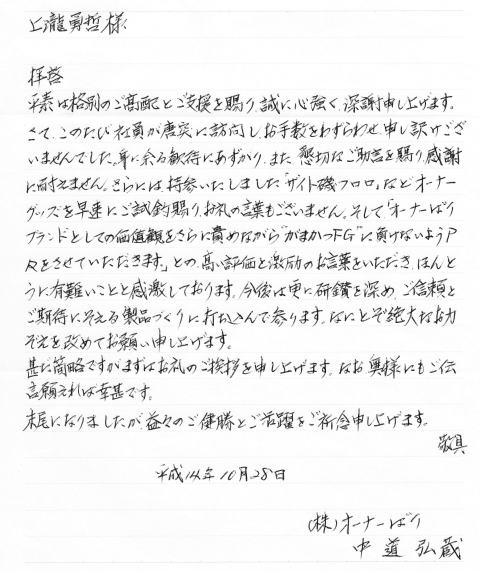 上瀧勇哲様
拝啓
平素は格別のご高配とご支援を賜り、誠に心強く、深謝申し上げます。
さて、このたび社員が唐突に訪問し、お手数をわずらわせ申し訳ござ
いませんでした。身に余る歓待にあずかり、また、懇切なご助言を賜り感謝
に耐えません。さらには、持参いたしました「サイト磯フロロ」などオーナー
グッズを早速にご試釣賜り、お礼の言葉もございません。そして「オーナーばり
ブランドとしての価値観をさらに責めながら"がまかつFG"に負けないようP
Rをさせていただきます」との、高い評価と激励のお言葉をいただき、ほんと
うに有難いことと感激しております。今後は更に研鑽を深め、ご信頼と
ご期待にそえる製品づくりに打ち込んで参ります。なにとぞ絶大なお力
ぞえを改めてお願い申し上げます。
甚だ簡略ですがまずはお礼のご挨拶を申し上げます。なお奥様にもご伝
言願えれば幸甚です。
末尾になりましたが、益々のご健勝とご活躍をご祈念申し上げます。
敬具
平成14年10月28日
(株)オーナーばり
中道弘蔵